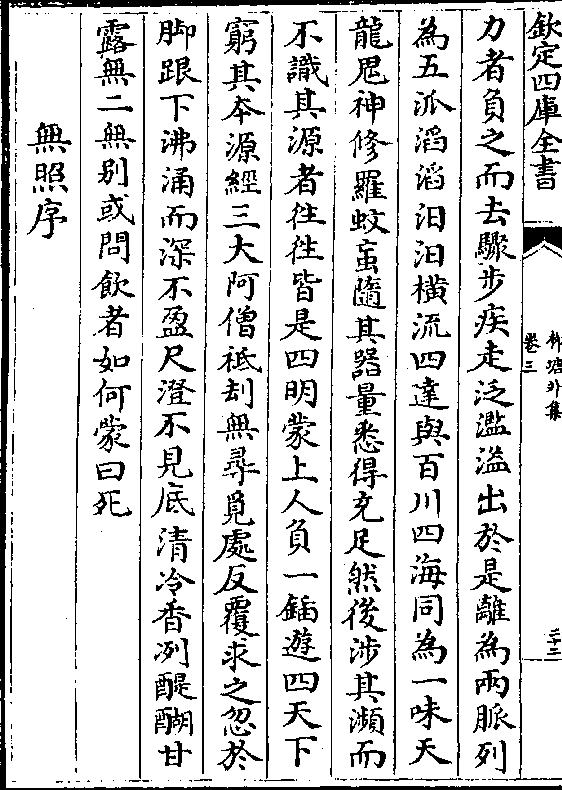 欽定四庫全書
卷三
二十三
力者負之而去驟步疾走泛濫溢出於是離為兩脈列
為五派滔滔汨汨橫流四達與百川四海同為一味天
龍鬼神修羅蚊䖟隨其器量悉得充足然後涉其瀕而
不識其源者往往皆是四明蒙上人負一鍤遊四天下
窮其本源經三大阿僧祗刦無尋覓處反覆求之忽於
脚跟下沸涌而深不盈尺澄不見底清冷香冽醍醐甘
露無二無别或問飲者如何蒙曰死
無照序